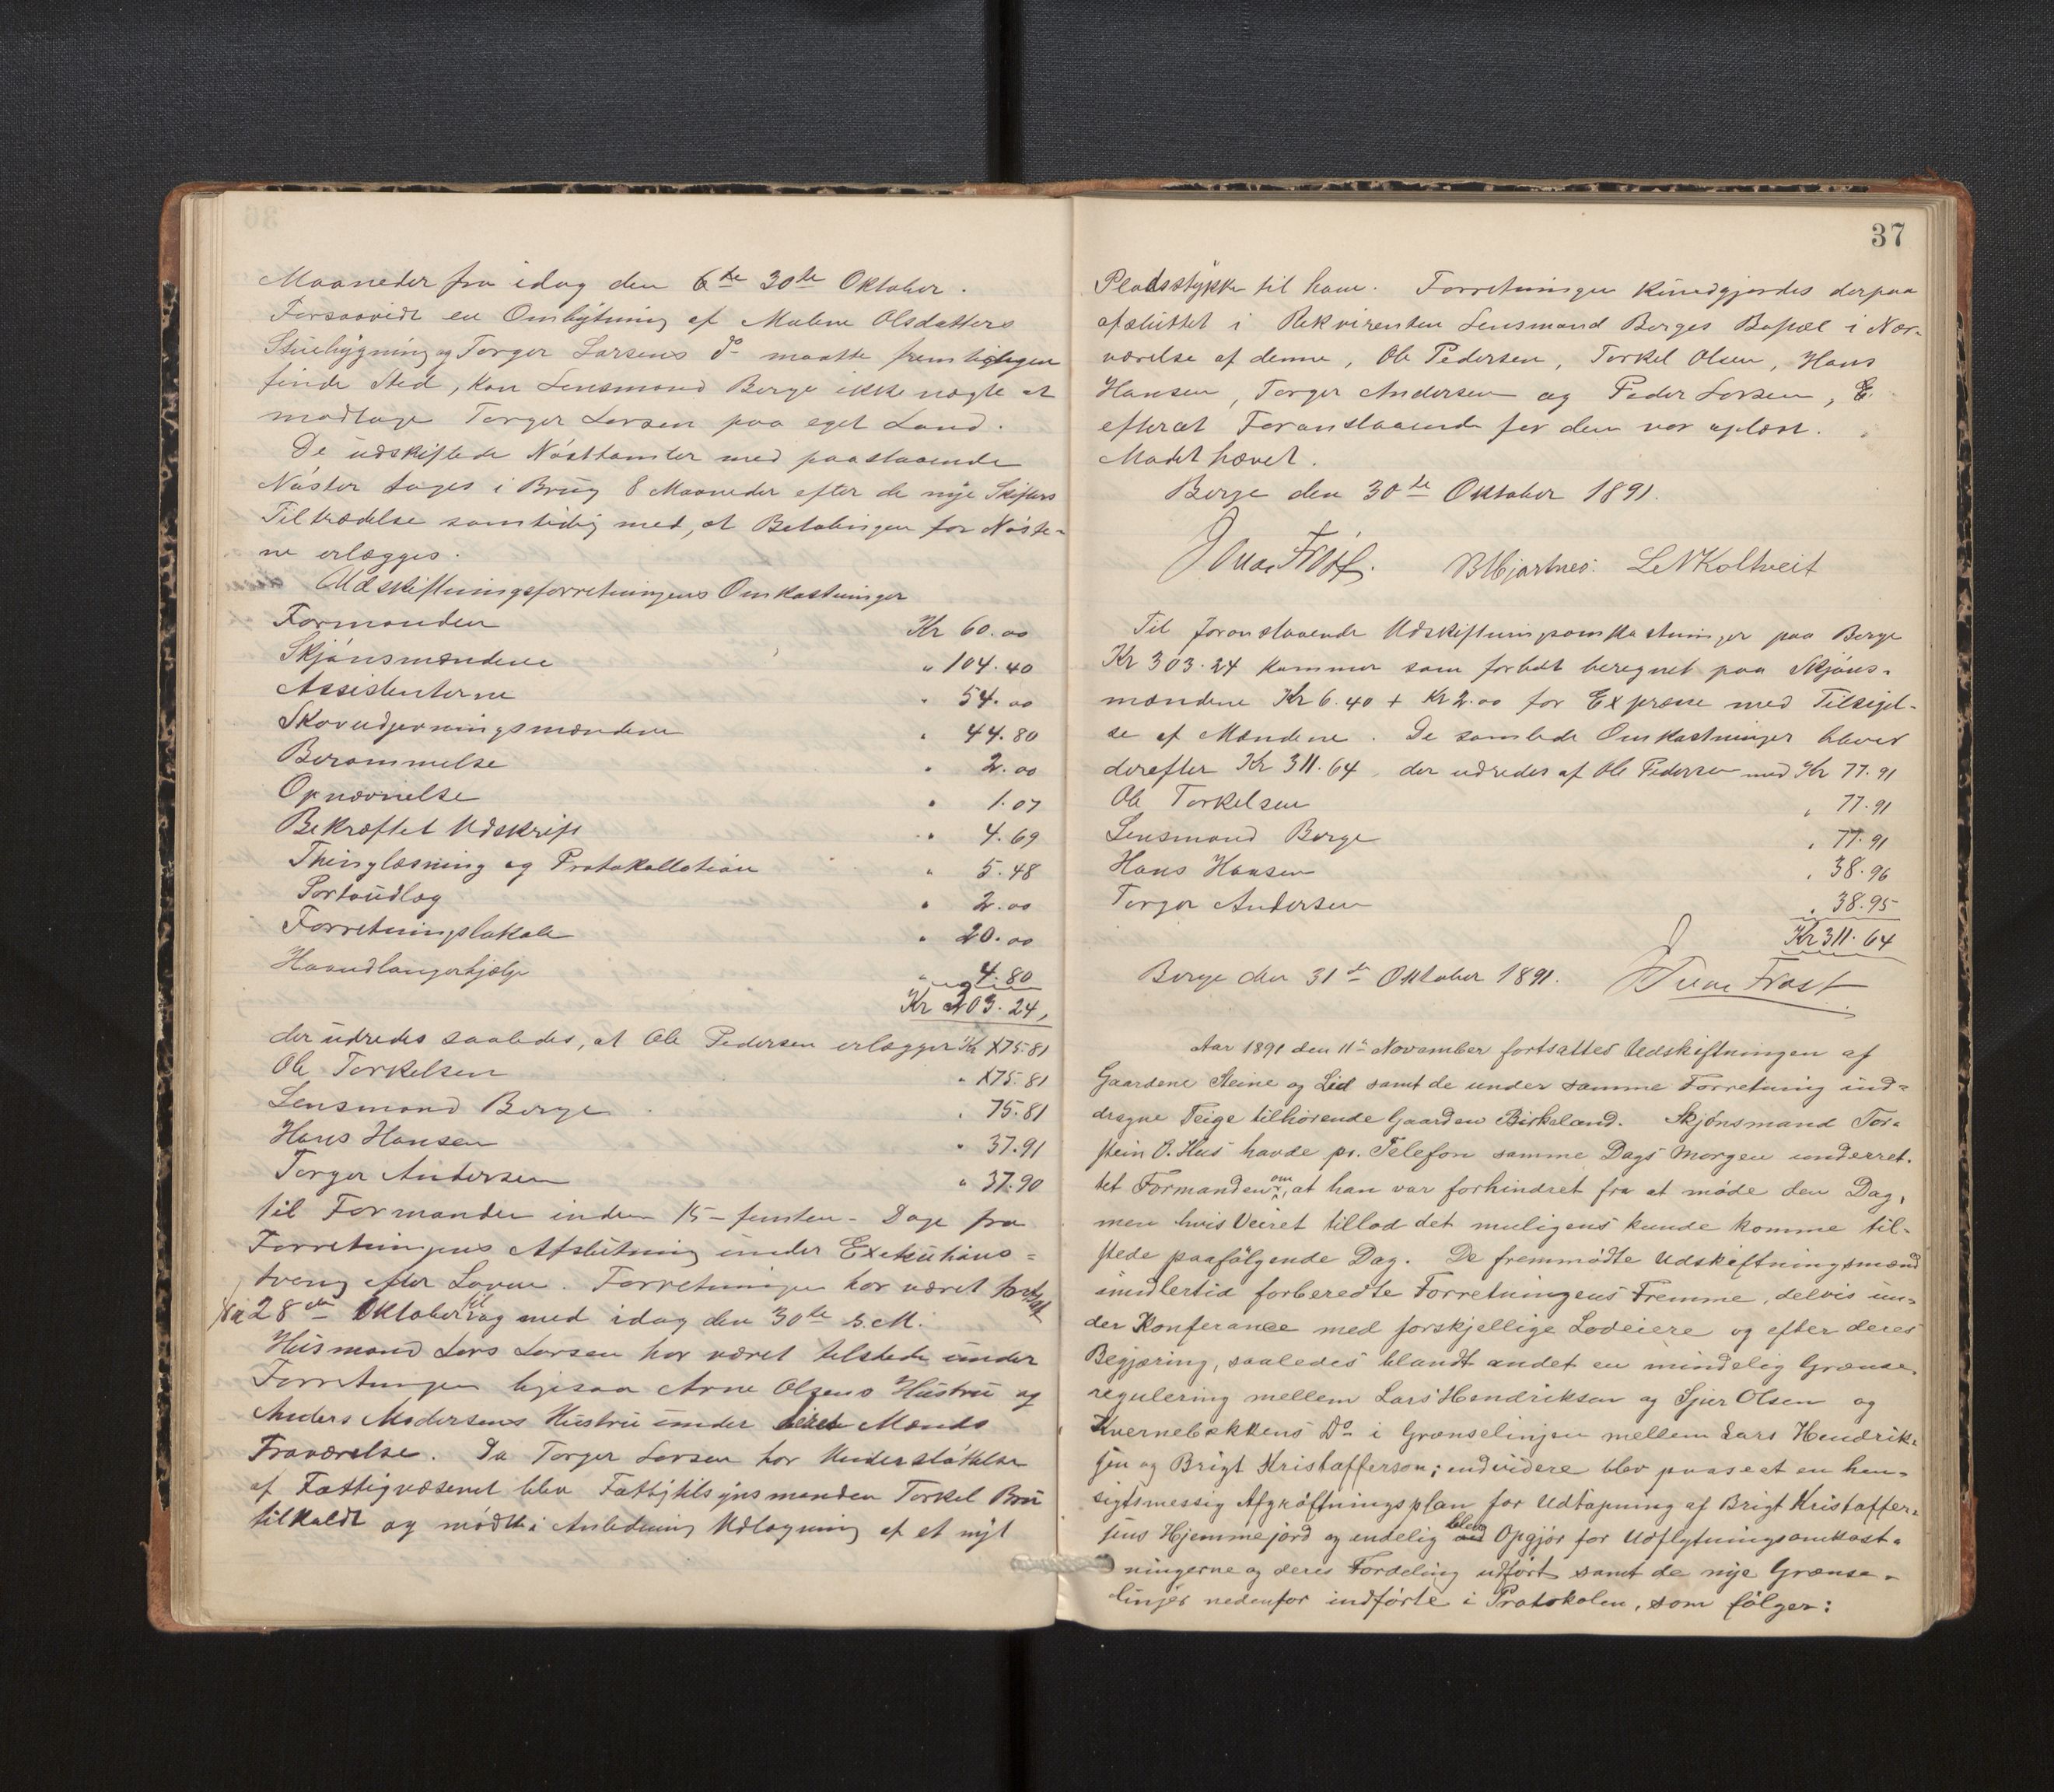 Maaneder fra idag den 6te 30te Oktober.
Forsaavidt en Ombytning af Malene Olsdatters
Stuebygning og Torger Larsens do maatte fremtidigen
finde Sted, kan Lensmand Berge ikke nægte at
modtage Torger Larsen paa eget Land.
De udskiftede Nösttomter med paastaaende
Nöster tages i Brug 8 Maaneder efter de nye Skifters
Tiltrædelse samtidig med, at Betalingen for Nöste-
ne erlægges.
Udskiftningsforretningens Omkostninger
Formanden Kr 60.00
Skjönsmændene " 104.40
Assistenterne " 54.00
Skovudjevningsmændene " 44.80
Berammelse " 2.00
Opnævnelse " 1.07
Bekræftet Udskrift " 4.69
Thinglæsning og Protokollation " 5.48
Portoudlæg " 2.00
Forretningslokale " 20.00
Haandlangerhjælp " 4.80
Kr 303.24,
der udredes saaledes, at Ole Pedersen erlægger Kr 75.81
Ole Torkelsen " 75.81
Lensmand Berge " 75.81
Hans Hansen " 37.91
Torger Andersen " 37.90
til Formanden inden 15 - femten - Dage fra
Forretningens Afslutning under Exekutions=
tvang efter Loven. Forretningen har været
fra 28de Oktober til og med idag den 30te s.M.
Husmand Lars Larsen har været tilstede under
Forretningen ligesaa Arne Olsens Hustru og
Anders Andersens Hustru under deres Mænds
Fraværelse. Da Torger Larsen har Understöttelse
af Fattigvæsenet blev Fattigtilsynsmanden Torkel Bru
tilkaldt og mödte i Anledning Udlægning af et nyt
37
Pladsstykke til ham. Forretningen kundgjordes derpaa
afsluttet i Rekvirenten Lensmand Berges Bopæl i Nær-
værelse af denne, Ole Pedersen, Torkel Olsen, Hans
Hansen, Torger Andersen og Peder Larsen, E.
efterat Foranstaaende for dem var oplæst.
Mödet hævet.
Berge den 30te Oktober 1891.
Frost. B Hjartnes. L N Koltveit
Til foranstaaende Udskiftningsomkostninger paa Berge
Kr 303.24 kommer som forlidt beregnet paa Skjöns-
mændene Kr 6.40 + Kr 2.00 for Expresse med Tilsigel-
se af Mændene. De samlede Omkostninger bliver
derefter Kr 311.64, der udredes af Ole Pedersen med Kr 77.91
Ole Torkelsen " 77.91
Lensmand Berge " 77.91
Hans Hansen " 38.96
Torger Andersen " 38.95
Kr 311.64
Berge den 31te Oktober 1891. Frost
Aar 1891 den 11te November fortsattes Udskiftningen af
Gaardene Steine og Lid samt de under samme Forretning ind=
dragne Teige tilhörende Gaarden Birkeland. Skjönsmand Tor=
stein O. Hus havde pr. Telefon samme Dags Morgen underret-
tet Formanden om, at han var forhindret fra at möde den Dag,
men hvis Veiret tillod det muligens kunde komme til-
stede paafölgende Dag. De fremmödte Udskiftningsmænd
imidlertid forberedte Forretningens Fremme, delvis un=
der Konferance med forskjellige Lodeiere og efter deres
Begjæring, saaledes blandt andet en mindelig Grænse-
regulering mellem Lars Hendriksen og Sjur Olsen og
Kvernebækkens Do i Grænselinjen mellem Lars Hendrik=
sen og Brigt Kristafferson; endvidere blev paaseet en hen-
sigtsmessig Afgröftningsplan for Udtapning af Brigt Kristaffer=
sens Hjemmejord og endelig blev Opgjör for Udflytningsomkost=
ningerne og deres Fordeling udfört samt de nye Grænse-
linjer nedenfor indförte i Protokolen, som fölger: